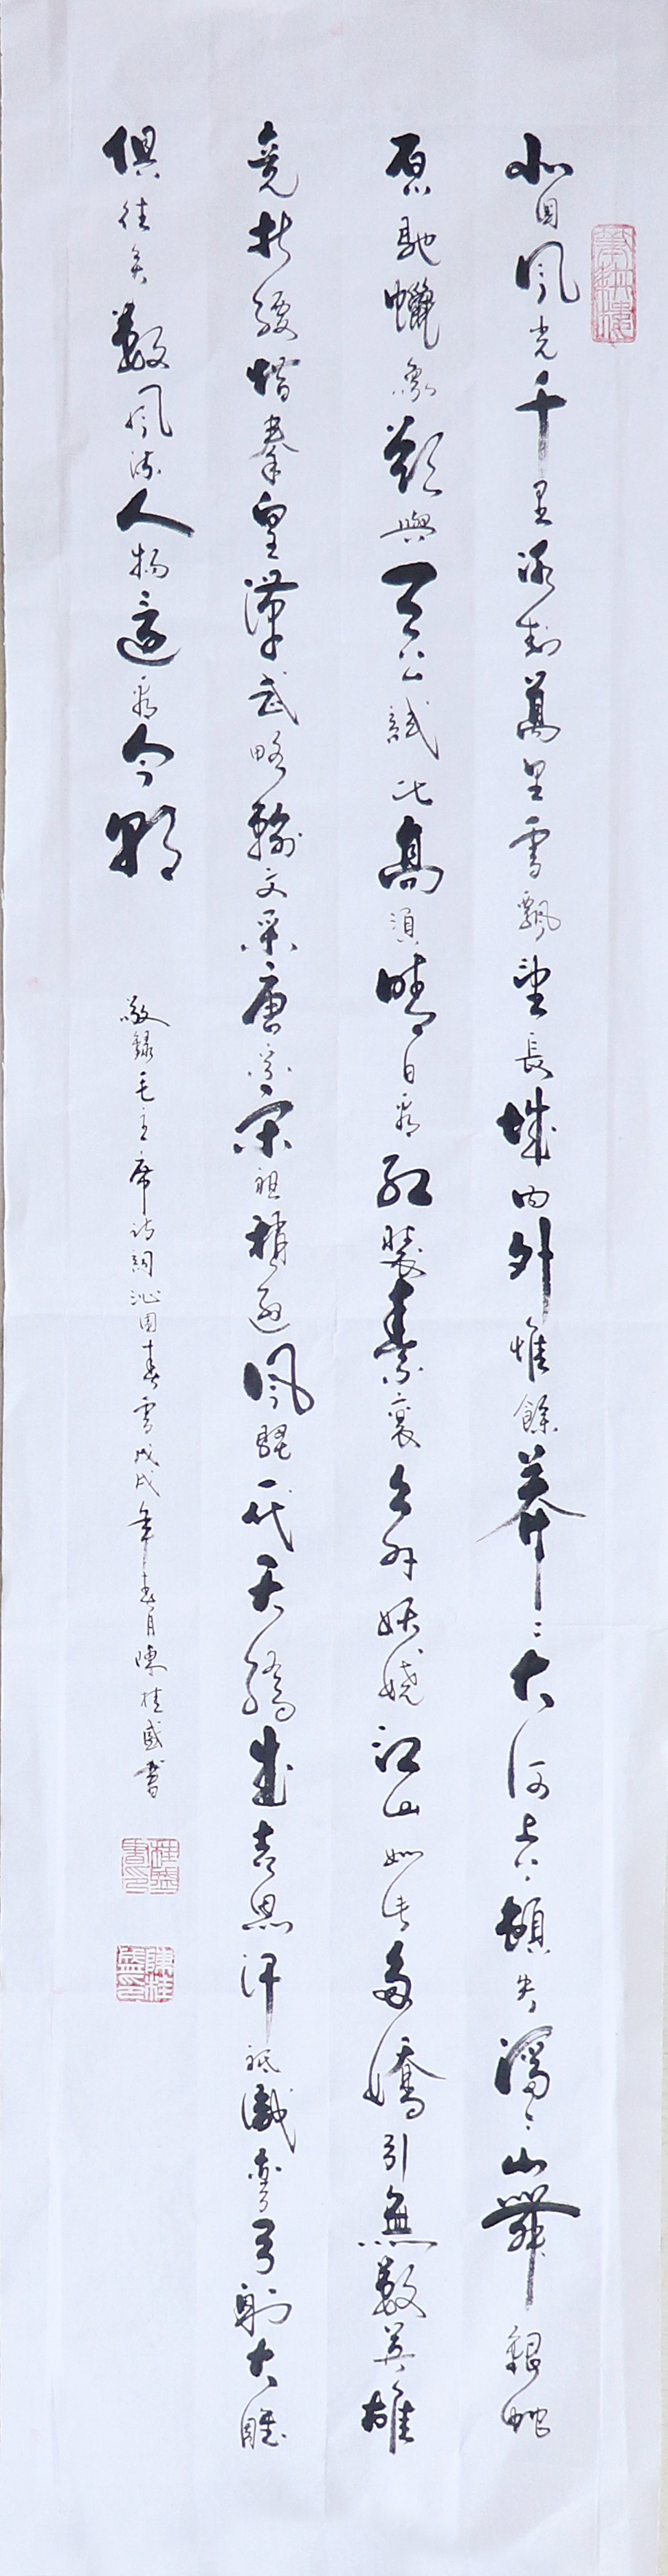 北国风光千里冰封萬里雪飄望長城内外惟餘莽〻大河上下頓失滔〻山舞銀蛇
原馳蠟象欲與天公試比高須晴日看红装素裹分外妖娆江山如此多嬌引無數英雄
竞折腰惜秦皇漢武略输文采唐宗宋祖稍逊风騷一代天骄成吉思汗祗識彎弓射大雕
俱往矣數风流人物還看今朝
敬録毛主席诗詞沁园春雪戊戌年春月陳桂盛書
桂盛書印
陳桂盛印